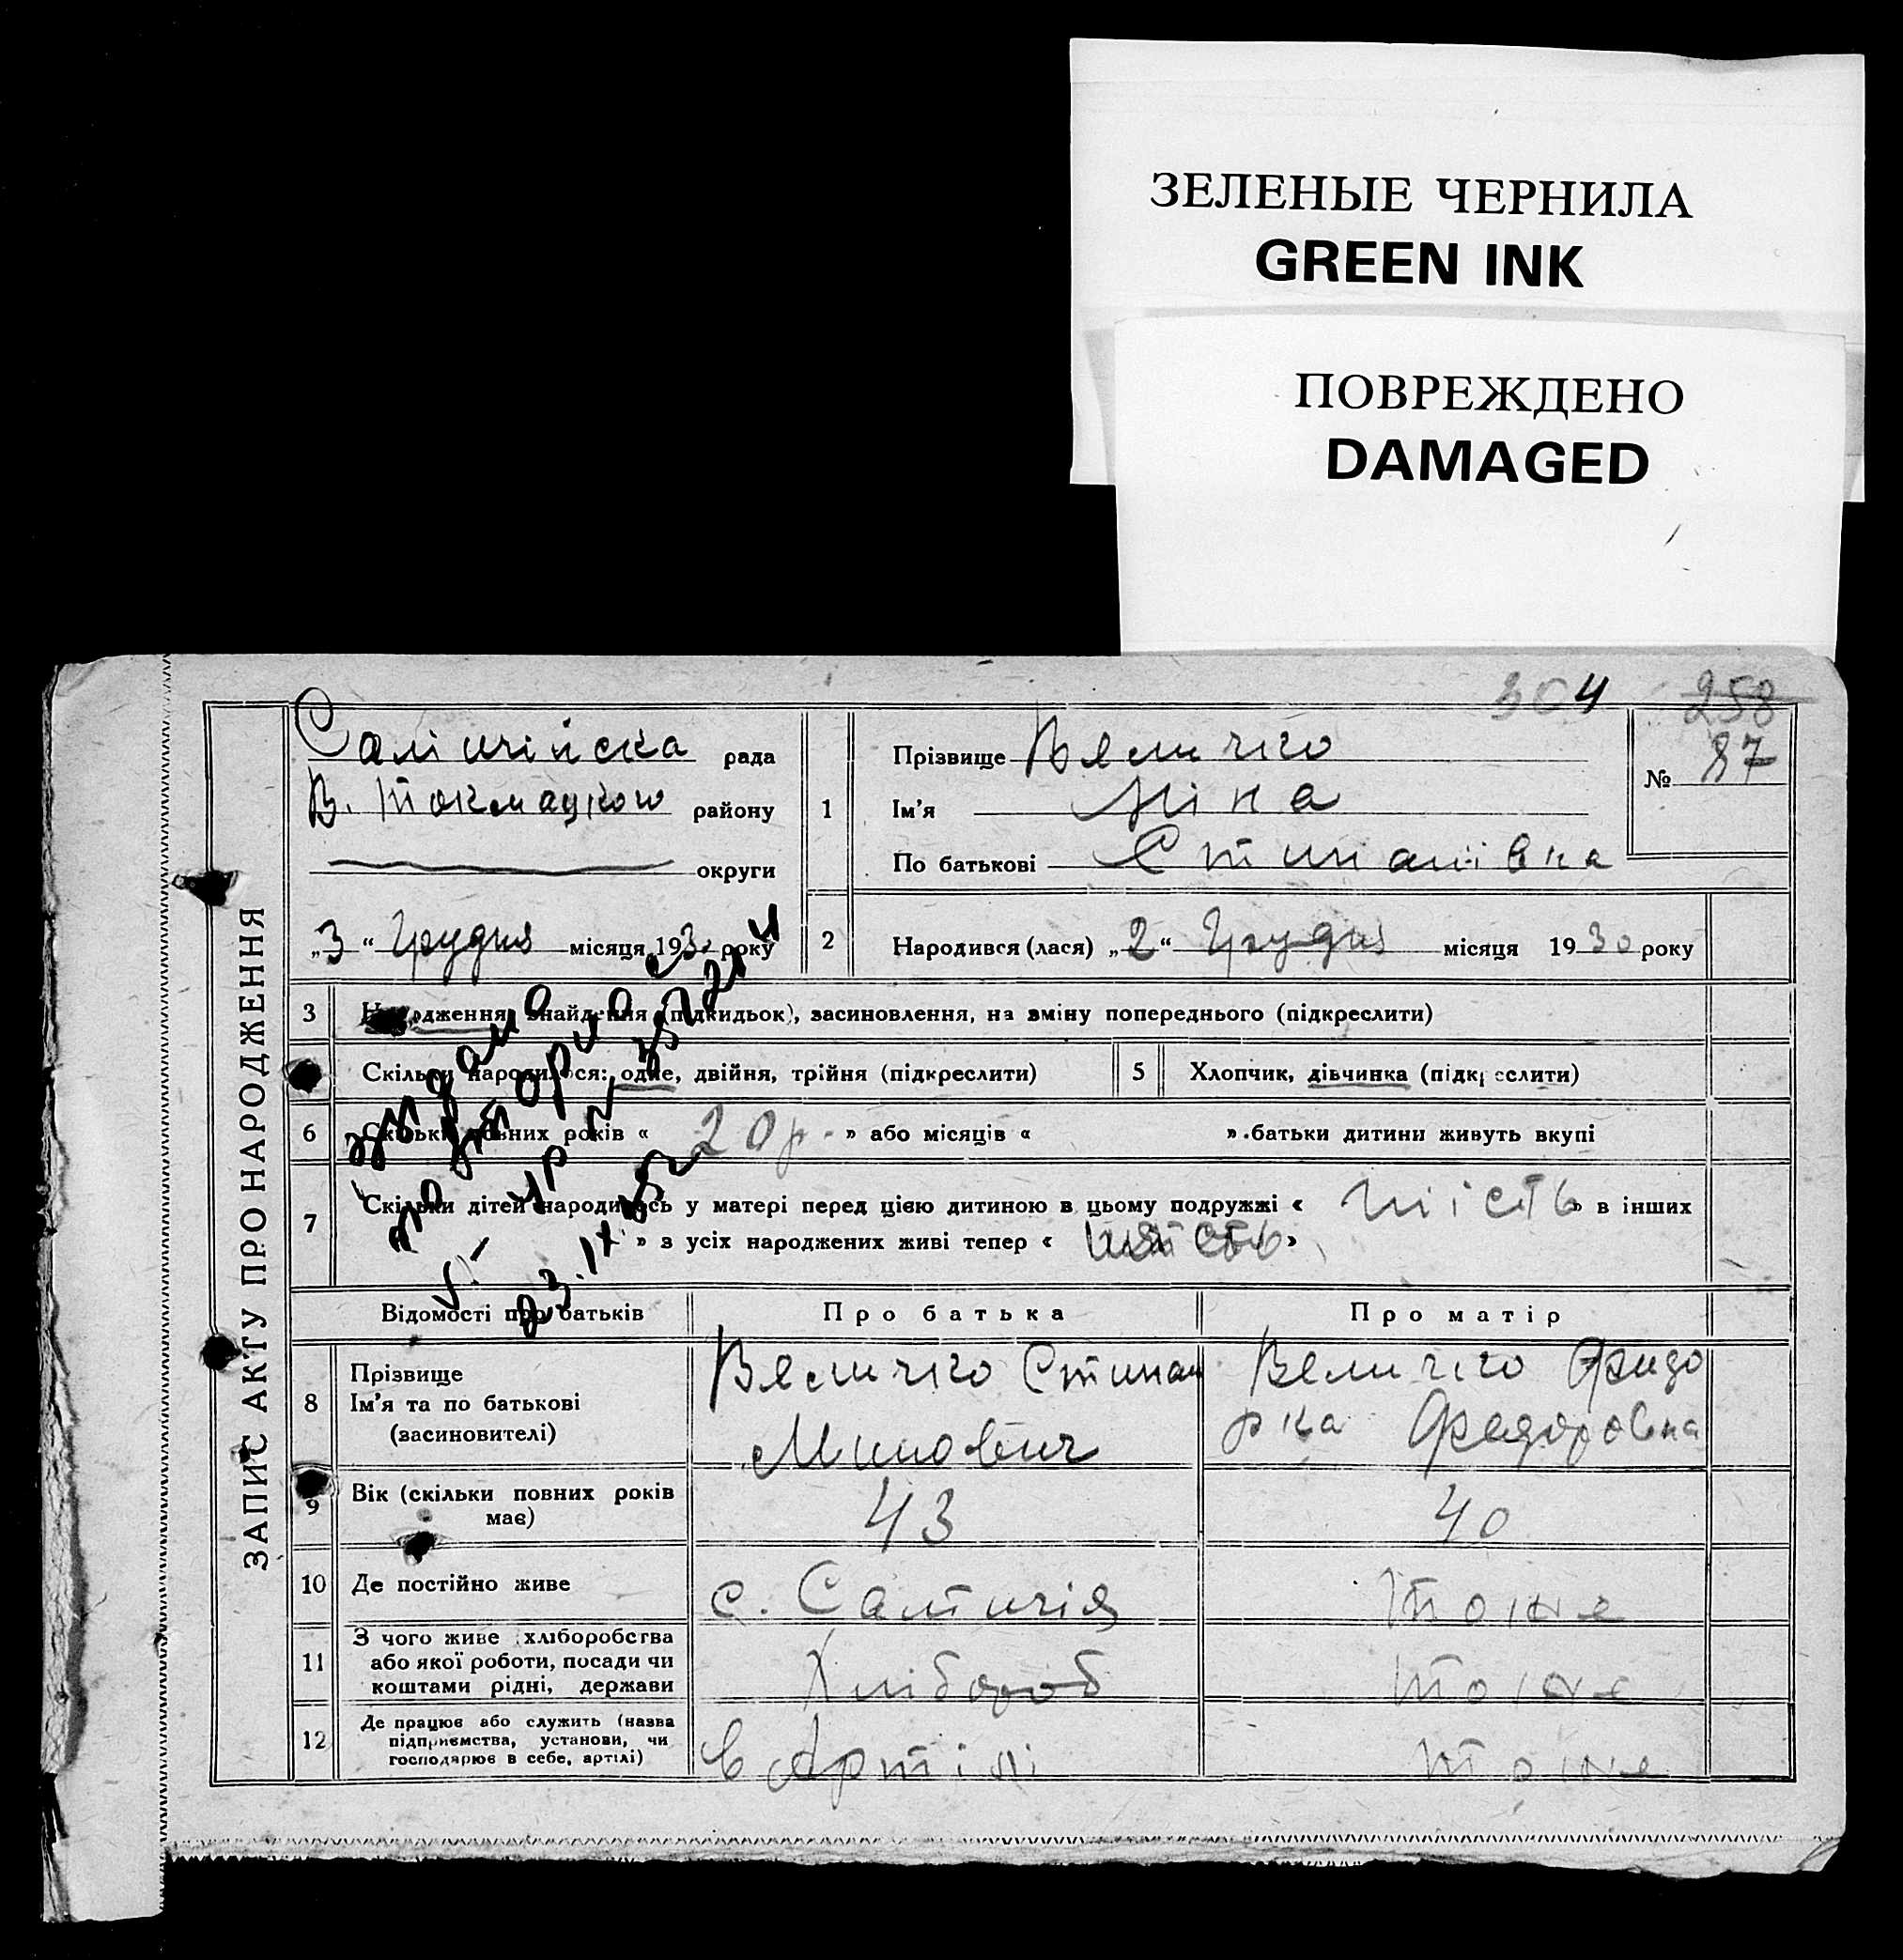 ЗЕЛЕНЫЕ ЧЕРНИЛА
GREEN INK
ПОВРЕЖДЕНО
DAMAGED
304 258
ЗАПИС АКТУ ПРО НАРОДЖЕННЯ
рада
В. Токмацкого району
округи
„3“ Грудня місяця 1930 року
1
Прізвище Вяличко
Ім'я Ніна
По батькові Стипанівна
№ 87
2 Народився (лася) „2“ Грудня місяця 1930 року
3 Народження, знайдення (підкидьок), засиновлення, на зміну попереднього (підкреслити)
Скільки народилося: одне, двійня, трійня (підкреслити)
5 Хлопчик, дівчинка (підкреслити)
6 Скільки повних років « 20 р. » або місяців « » батьки дитини живуть вкупі
7 Скільки дітей народилось у матері перед цією дитиною в цьому подружжі « шість » в інших
» з усіх народжених живі тепер « шість »
Відомості про батьків Про батька Про матір
8 Прізвище
Ім'я та по батькові
(засновителі)
Вяличко Стипан
Минович
Величко Фидо
рка Федоровна
9 Вік (скільки повних років
має)
43 40
10 Де постійно живе с. Салтичія тоже
11 З чого живе хліборобства
або якої роботи, посади чи
коштами рідні, держави
Хлібороб тоже
12 Де працює або служить (назва
підприємства, установи, чи
господарює в себе, артілі)
в Артілі тоже